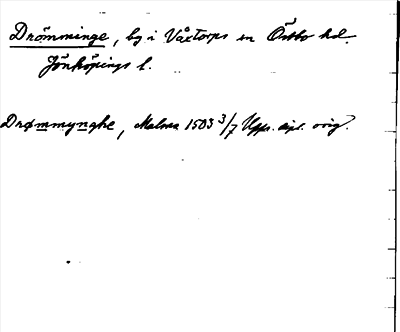 Drömminge, by i Våxtorps sn Östbo hd.
Jönköpings l.
Drømmynghe, Malmø 1503 3/7 Upps. dipl. orig.